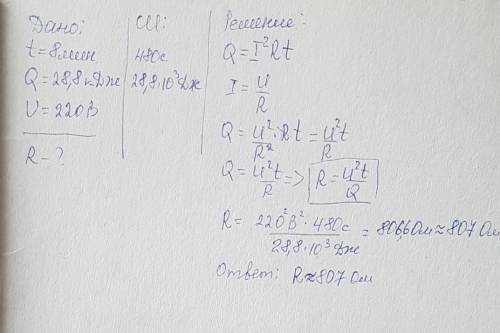 Дано:
t = 8 мин
Q = 28,8 кДж
U = 220 В
R - ?
СИ:
480 с
28,8·10³ Дж
Решение:
Q = I²Rt
I = u/R
Q = u²/R² · Rt = u²t/R
Q = u²t/R => R = u²t/Q
R = 220²В² · 480с / 28,8·10³ Дж = 806,6 Ом ≈ 807 Ом
Ответ: R ≈ 807 Ом